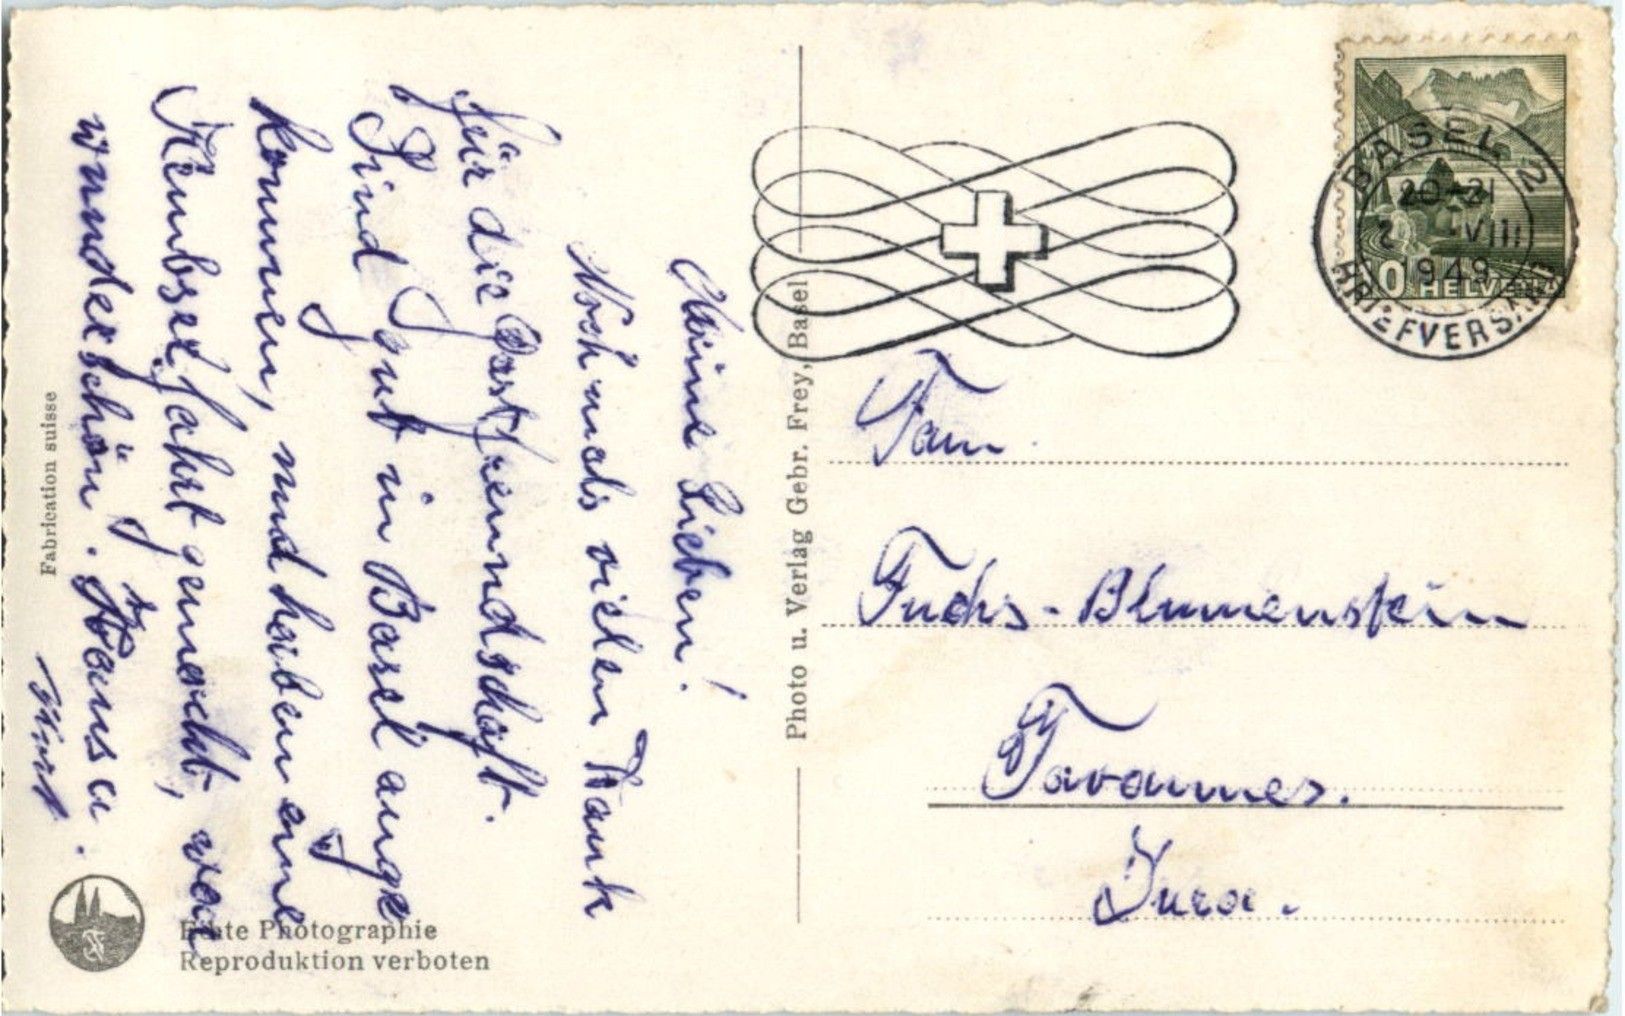 Meine Lieben!
Noch mals vielen Dank
für die Gastfreundschaft.
Sind gut in Basel ange
kommen, und haben eine
Kembserfahrt gemacht, war
wunderschön. Hans u.
Fabrication suisse
Echte Photographie
Reproduktion verboten
Photo u. Verlag Gebr. Frey, Basel
BASEL 2
20-21
VIII
1949
BRIEFVERSAND
10 HELVETIA
Fam.
Fuchs-Blumenstein
Tavannes.
Jura.